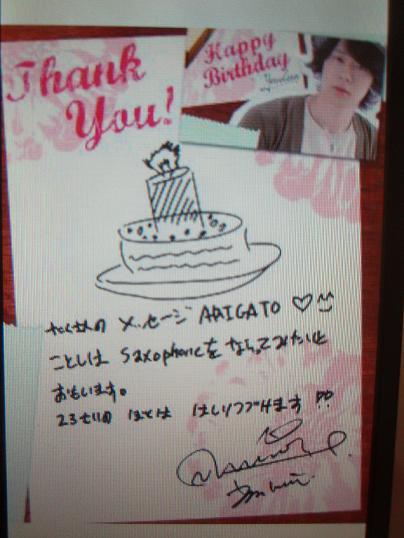 Thank
You!
Happy
Birthday
たくさんの メッセージ ARIGATO
ことしは Saxophoneを ならってみたいと
おもいます。
23さいの
はしりつづけます !!